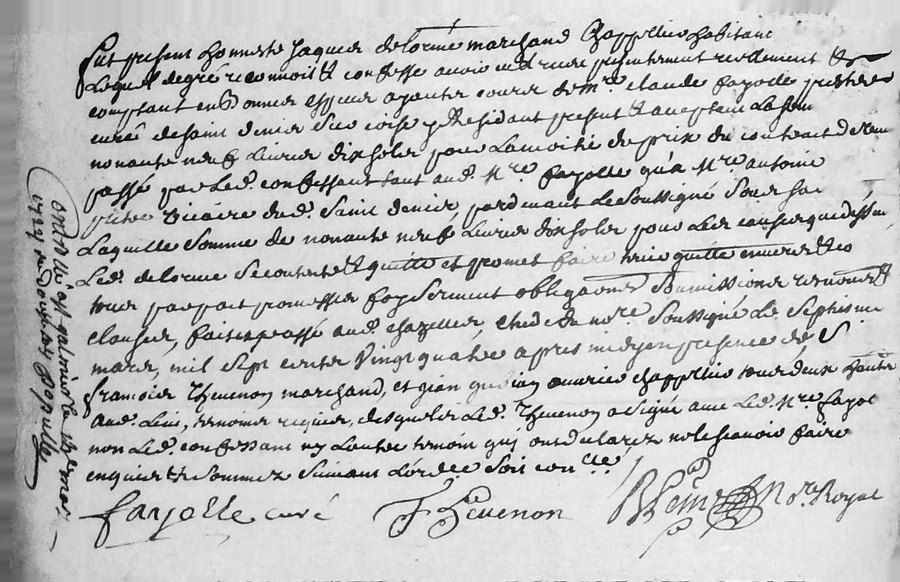 Fut present honneste Jaques delorme marchand Chappellie habitant
Lequel degré reconnoit et confesse avoir eu et receu presentement reellement et
comptant en bonnes espesses ayants cours de Mre. claude fayolle prestre
curé de saint denis sur coise y Residant present et acceptant La somme
nonante neuf Livres dix sols pour La moitié du prix du contract de
passé par Led. confessant tant aud. Mre. fayolle qu'a Mre. antoine
vicaire dud. Saint denis, pardevant Le Soussigné
Laquelle Somme de nonante neuf Livres dix sols pour Les causes que dessus
Led. delorme Se contente et quitte et promet faire tenir quitte envers et co
tous par foy Serment obligaons Soumissions renons et
clauses, fait et passé aud. chazelles, Estude de nore. Soussigné Le Septieme
mars, mil Sept cents Vingt quatre apres midy en presence de S.
françois Thevenon marchand, et Jean ouvrier chappellie tous deux habita
aud. Lieu, temoins requis, desquels Led. Thevenon a signé avec Led. Mre. fayol
non Led. confessant ny L'autre temoin qui ont declarez ne le scavoir faire
enquis et Sommez Suivant L'ordce Soit conllé
fayolle curé Thevenon Nore. Royal
Controllé a St galmier le 18e mars
1724